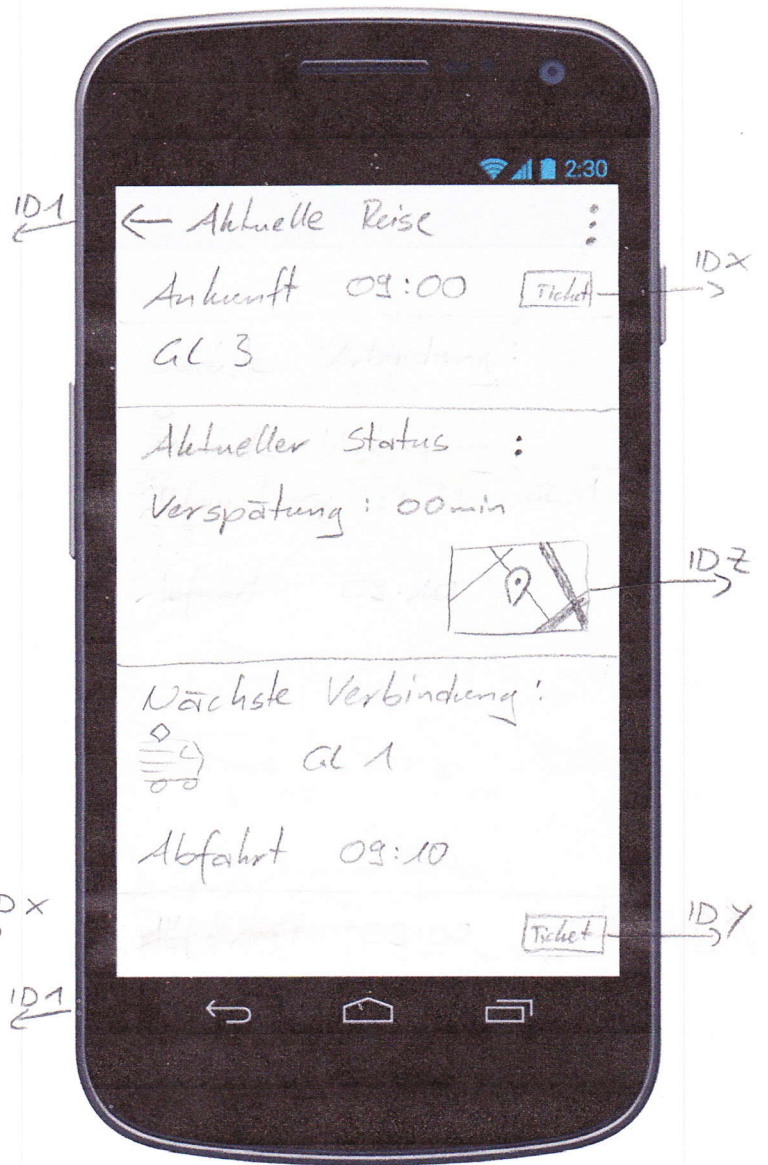 2:30
ID1
← Aktuelle Reise
Ankunft 09:00 Ticket
IDX
GL 3
Aktueller Status :
Verspätung : 00min
IDZ
Nächste Verbindung :
GL 1
Abfahrt 09:10
Ticket
IDY
ID1